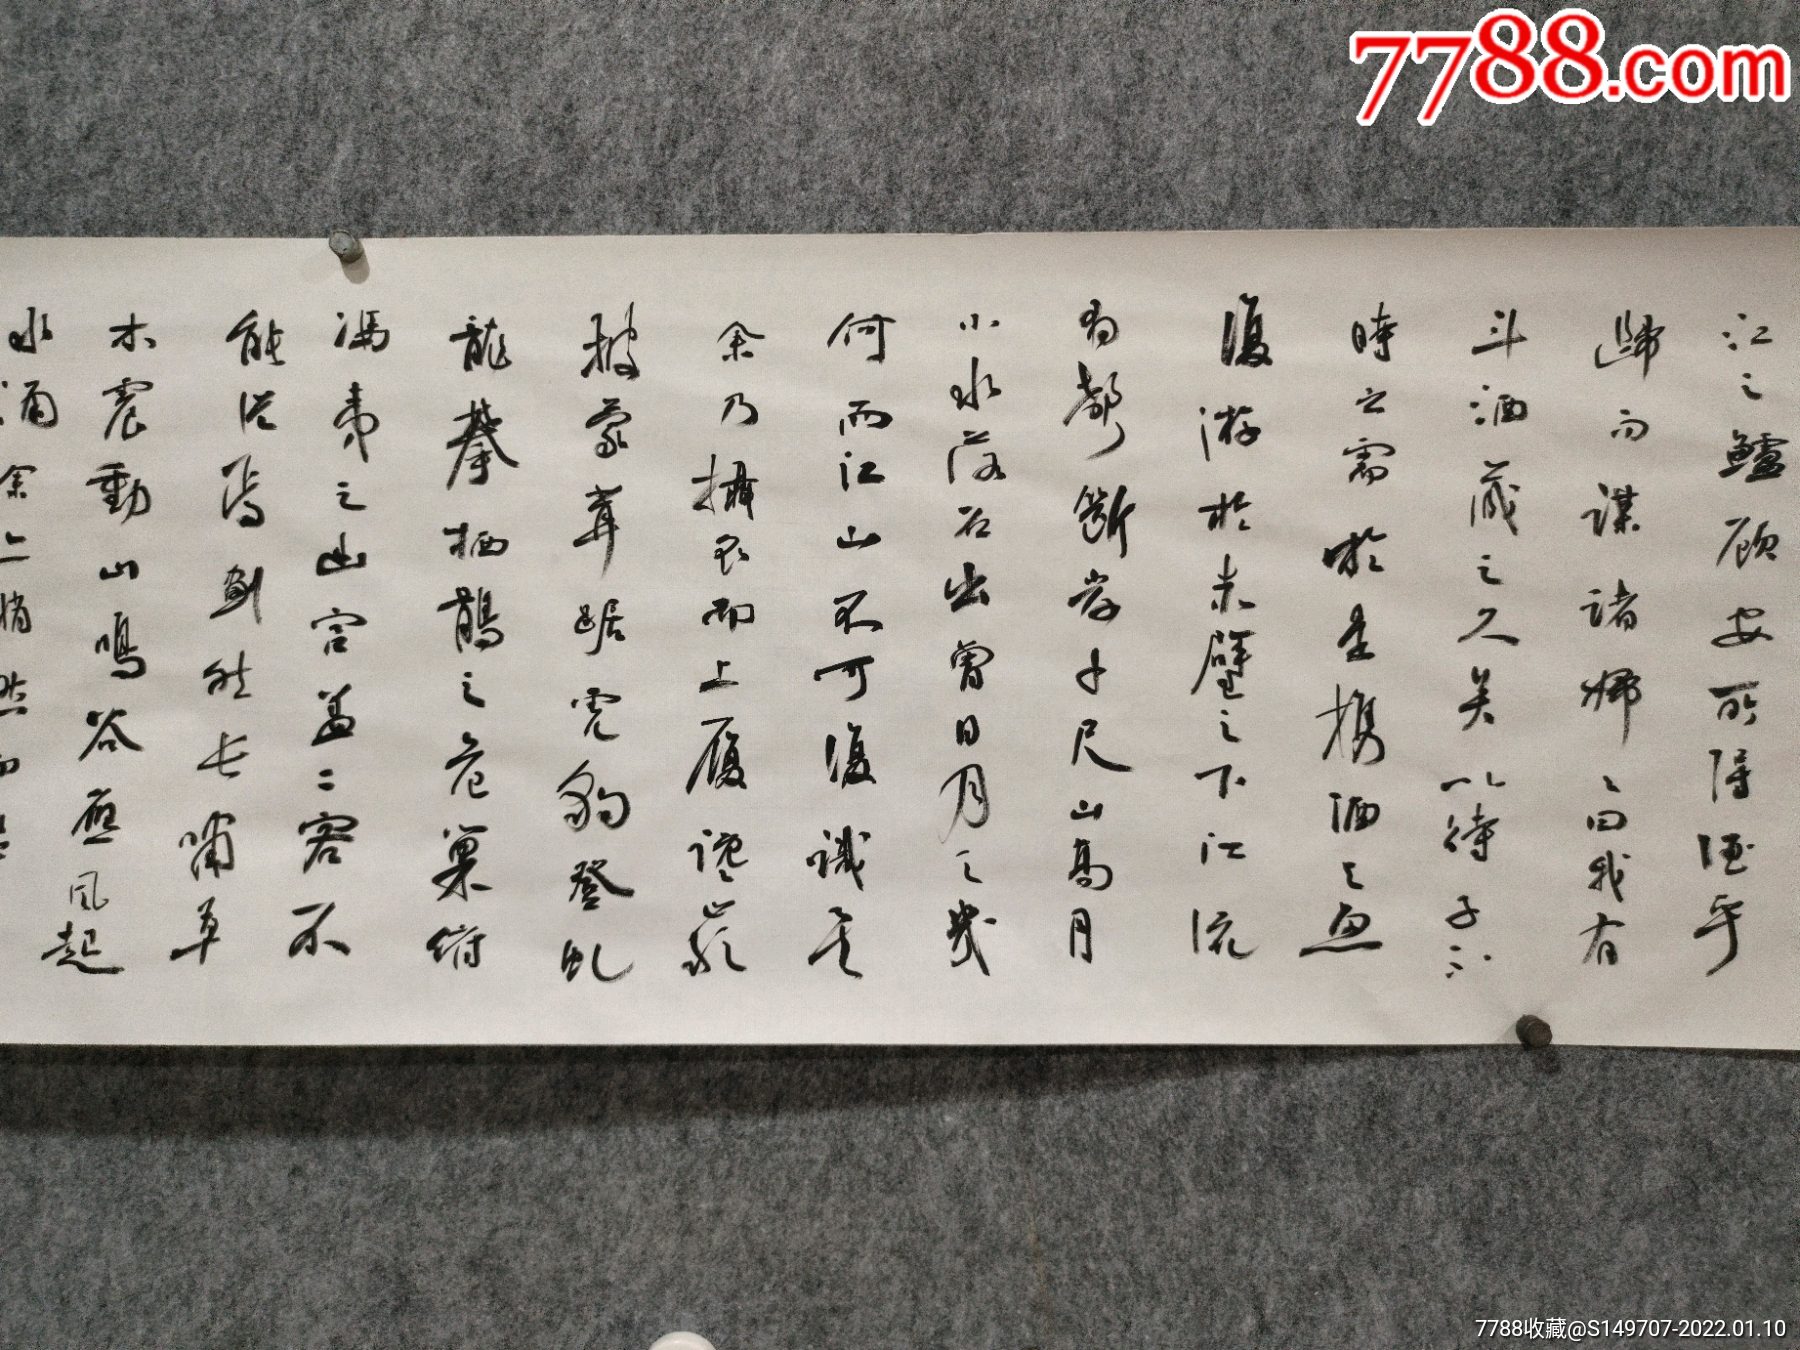 7788.com
江之鱸顧安所得酒乎
歸而謀諸婦〻曰我有
斗酒藏之久矣以待子不
時之需於是攜酒與魚
復游於赤壁之下江流
有聲斷岸千尺山高月
小水落石出曾日月之幾
何而江山不可復識矣
余乃攝衣而上履讒巖
披蒙茸踞虎豹登虬
龍攀栖鶻之危巢俯
馮夷之幽宮蓋二客不
能從焉劃然長嘯草
木震動山鳴谷應風起
水涌余上悄然而
7788收藏@S149707-2022.01.10